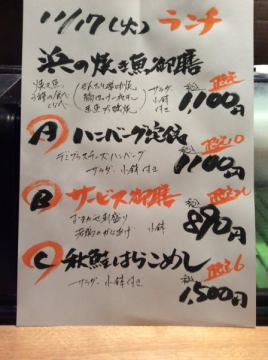 11/17(火) ランチ
浜の焼き魚御膳
限定
サラダ 小鉢付き
税込 1,100円
A ハンバーグ定食 限定10
デミグラスチーズハンバーグ
サラダ 小鉢付き
税込 1,100円
B サービス御膳
小鉢
税込 890円
C 秋鮭はらこめし 限定6
サラダ 小鉢付き
税込 1,500円